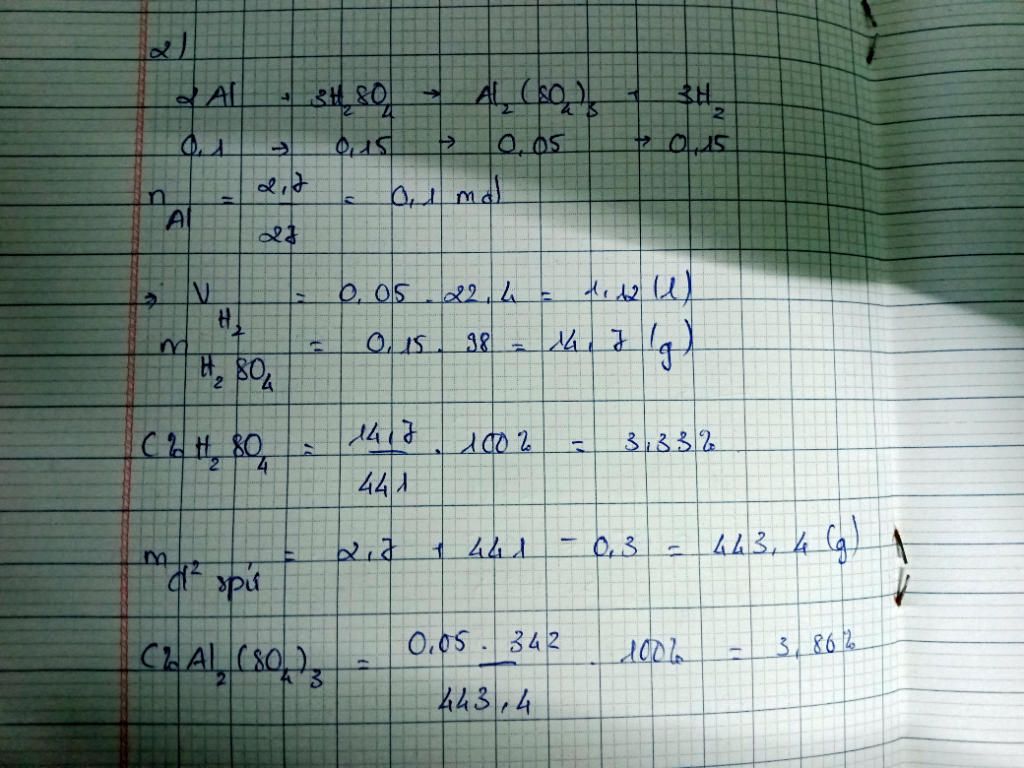 2)
2Al + 3H₂SO₄ → Al₂(SO₄)₃ + 3H₂
0,1 → 0,15 → 0,05 → 0,15
n Al = 2,7/27 = 0,1 mol
→ V H₂ = 0,05 . 22,4 = 1,12 (l)
m H₂SO₄ = 0,15 . 98 = 14,7 (g)
C% H₂SO₄ = 14,7/441 . 100% = 3,33%
m d² spứ = 2,7 + 441 - 0,3 = 443,4 (g)
C% Al₂(SO₄)₃ = 0,05 . 342/443,4 . 100% = 3,86%